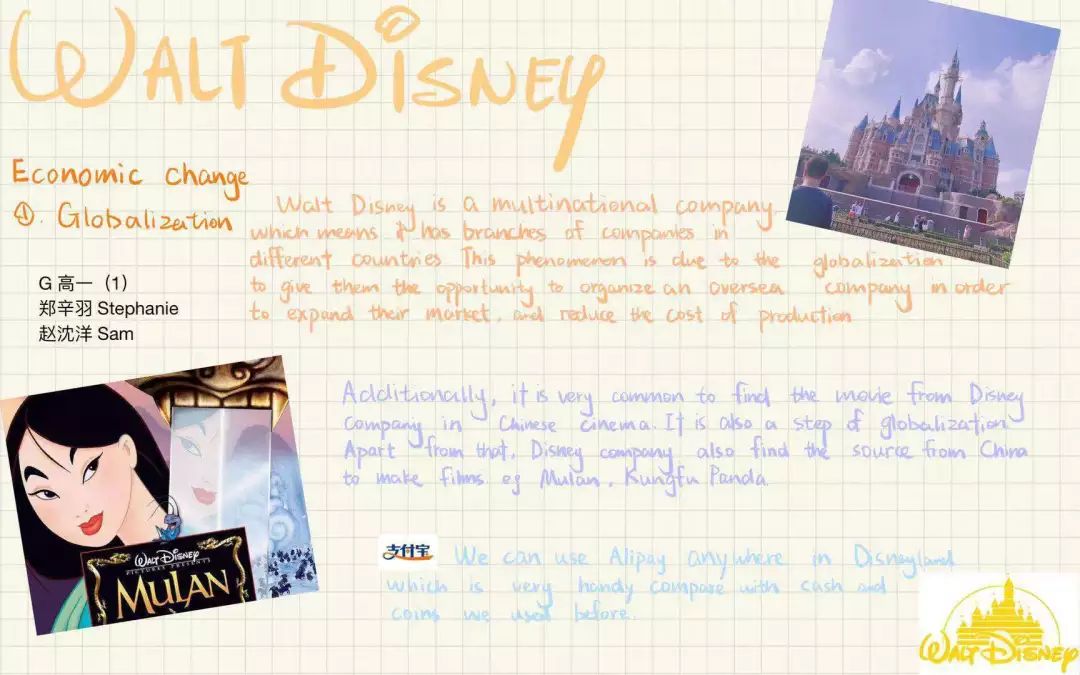 WALT DISNEY
Economic change
①. Globalization
Walt Disney is a multinational company.
which means it has branches of companies in
different countries. This phenomenon is due to the globalization
to give them the opportunity to organize an oversea company in order
to expand their market, and reduce the cost of production
G 高一（1）
郑辛羽 Stephanie
赵沈洋 Sam
Additionally, it is very common to find the movie from Disney
Company in Chinese cinema. It is also a step of globalization.
Apart from that, Disney company also find the source from China
to make films. eg Mulan, Kungfu Panda.
WALT DISNEY
PICTURES PRESENTS
MULAN
支付宝
We can use Alipay anywhere in Disneyland
which is very handy compare with cash and
coins we used before.
WALT DISNEY